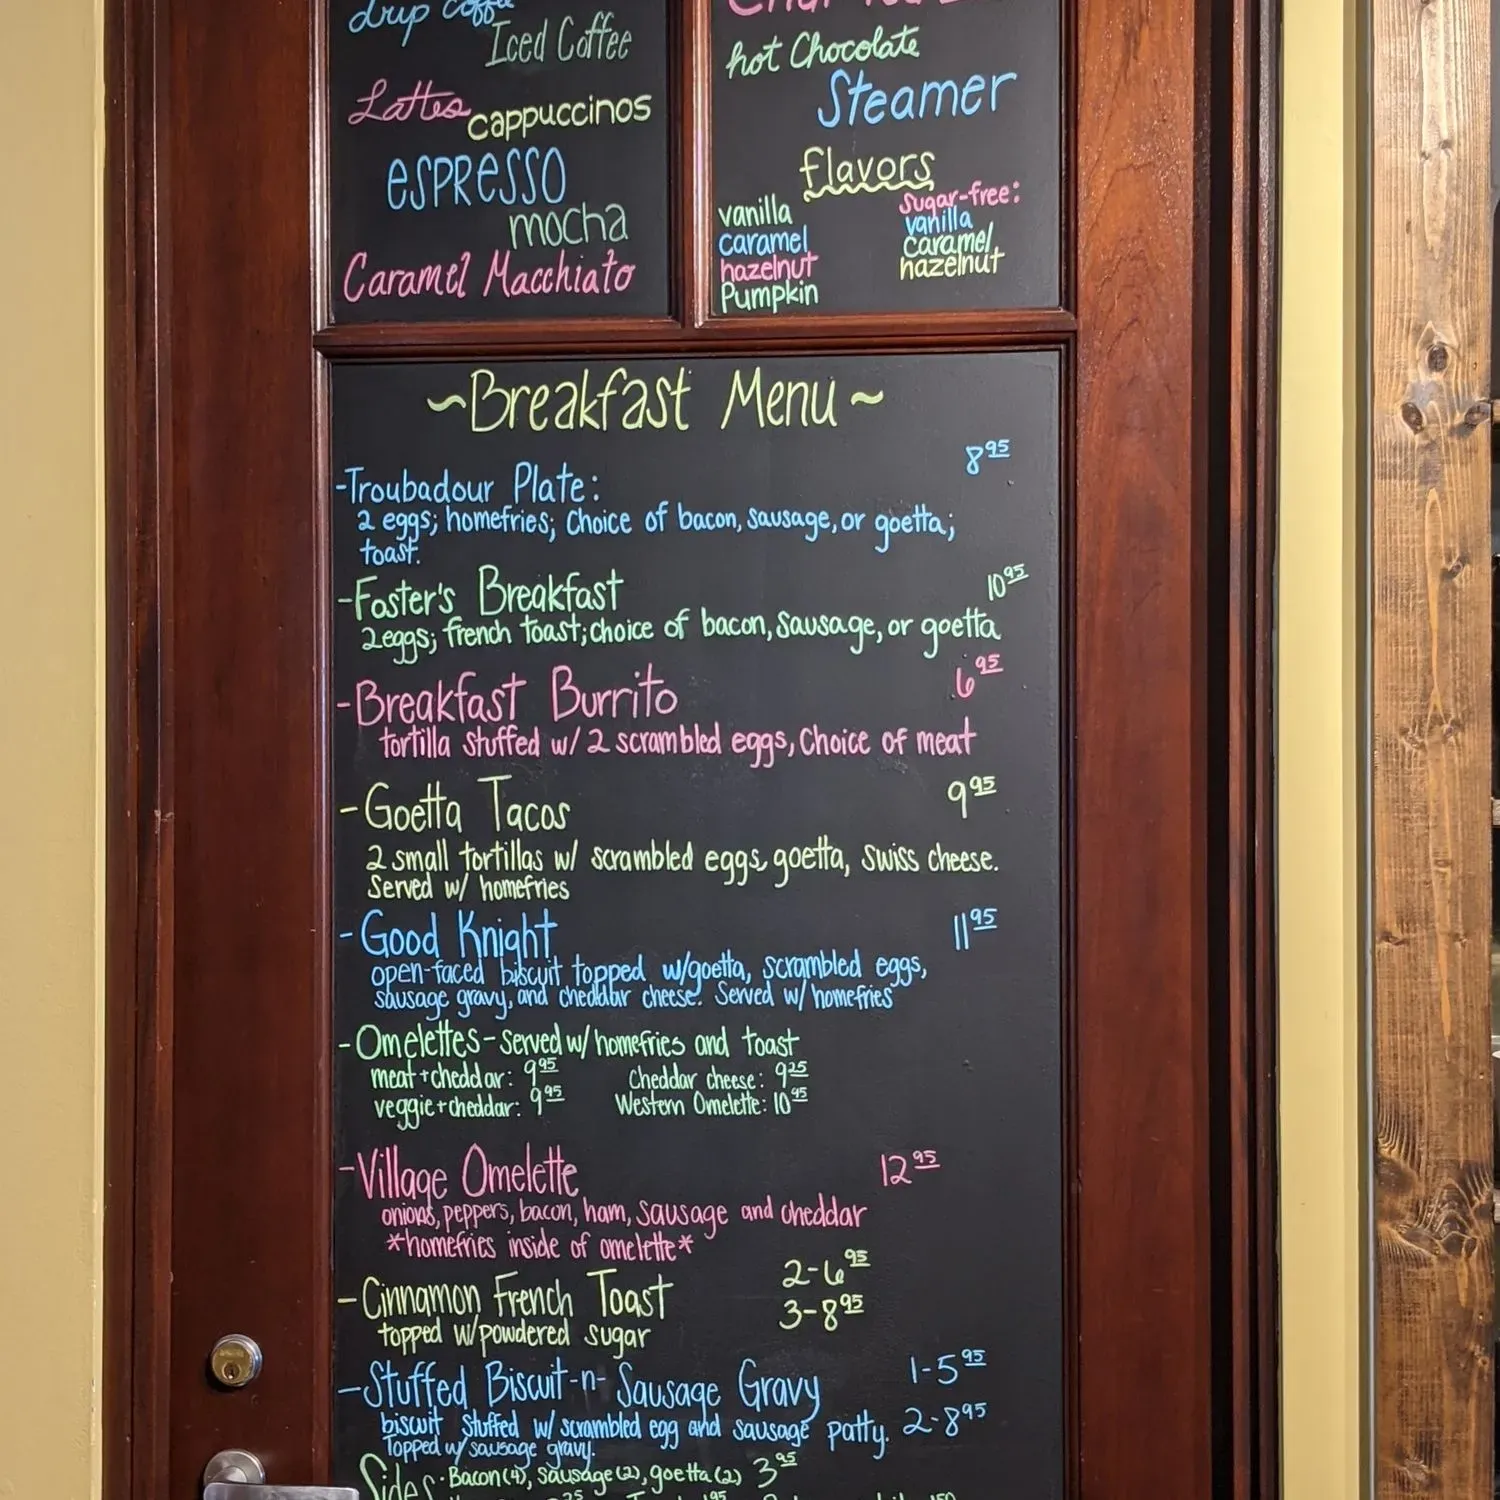 drip coffee
Iced Coffee
Lattes cappuccinos
espresso
mocha
Caramel Macchiato
hot Chocolate
Steamer
flavors
vanilla
caramel
hazelnut
Pumpkin
sugar-free:
vanilla
caramel
hazelnut
~Breakfast Menu~
-Troubadour Plate: 8 95
2 eggs; homefries; Choice of bacon, sausage, or goetta;
toast.
-Foster's Breakfast 10 95
2 eggs; french toast; choice of bacon, sausage, or goetta
-Breakfast Burrito 6 95
tortilla stuffed w/ 2 scrambled eggs, Choice of meat
-Goetta Tacos 9 95
2 small tortillas w/ scrambled eggs, goetta, swiss cheese.
Served w/ homefries
-Good Knight 11 95
open-faced biscuit topped w/goetta, scrambled eggs,
sausage gravy, and cheddar cheese. Served w/ homefries
-Omelettes-served w/ homefries and toast
meat+cheddar: 9 95 Cheddar cheese: 9 25
veggie+cheddar: 9 95 Western Omelette: 10 95
-Village Omelette 12 95
onions, peppers, bacon, ham, sausage and cheddar
*homefries inside of omelette*
-Cinnamon French Toast 2-6 95
3-8 95
topped w/powdered sugar
-Stuffed Biscuit-n-Sausage Gravy 1-5 95
biscuit stuffed w/ scrambled egg and sausage patty. 2-8 95
Topped w/ sausage gravy.
Sides · Bacon(4), sausage(2), goetta(2) 3 95